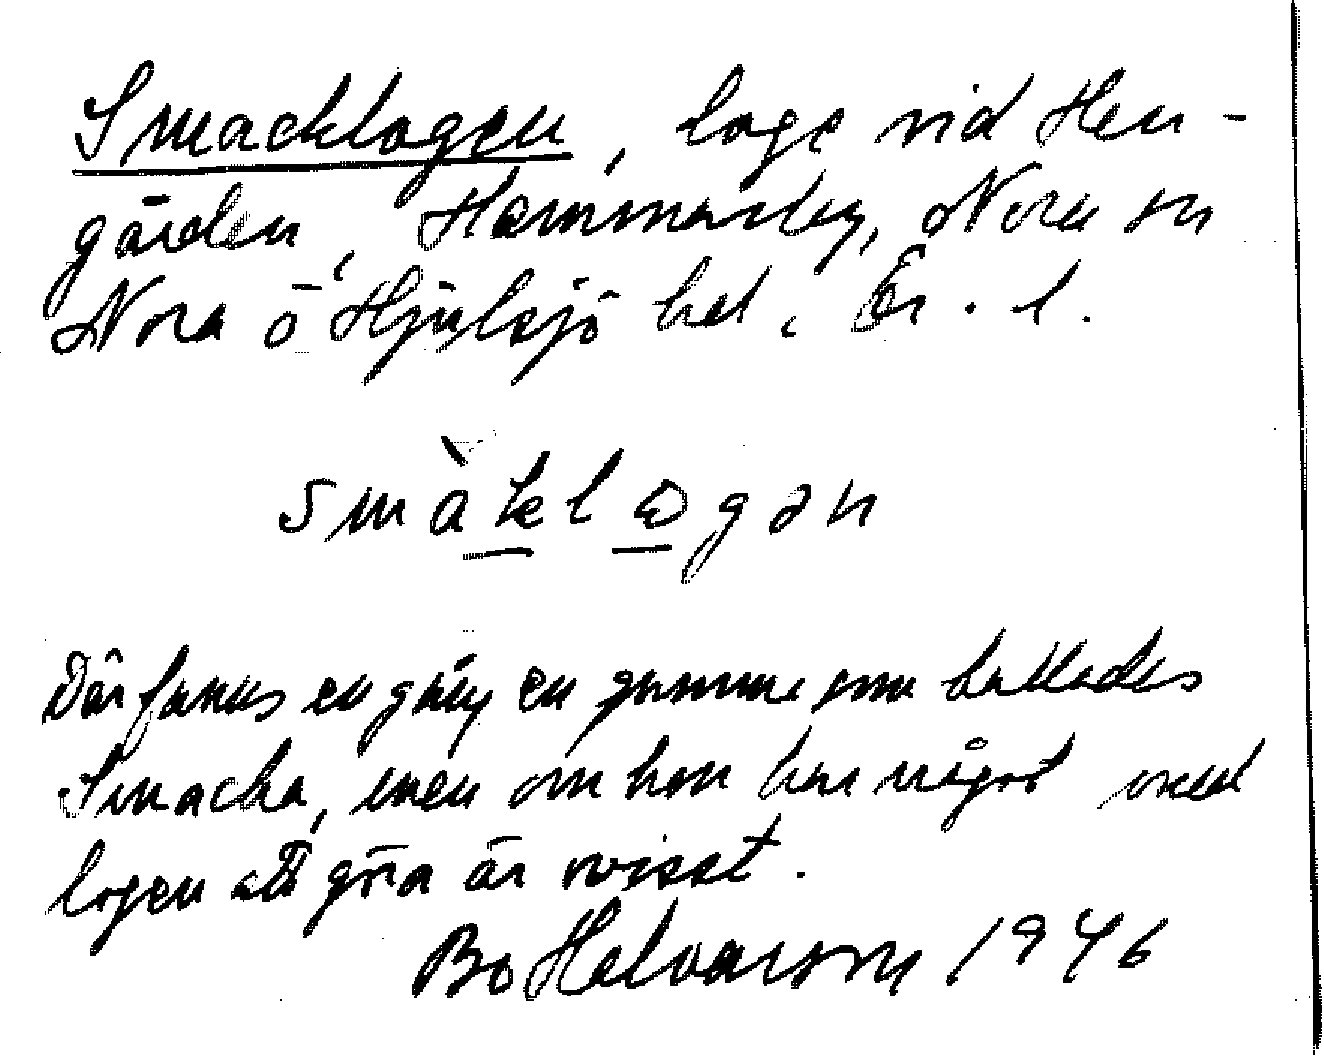 Smacklogen, loge vid Hen-
gården, Hammarby, Nora sn
Nora o Hjulsjö hd, Ör. l.
smàklogən
Där fanns en gång en gumma som kallades
Smacka, men om hon har något med
logen att göra är ovisst.
Bo Helvarsson 1946